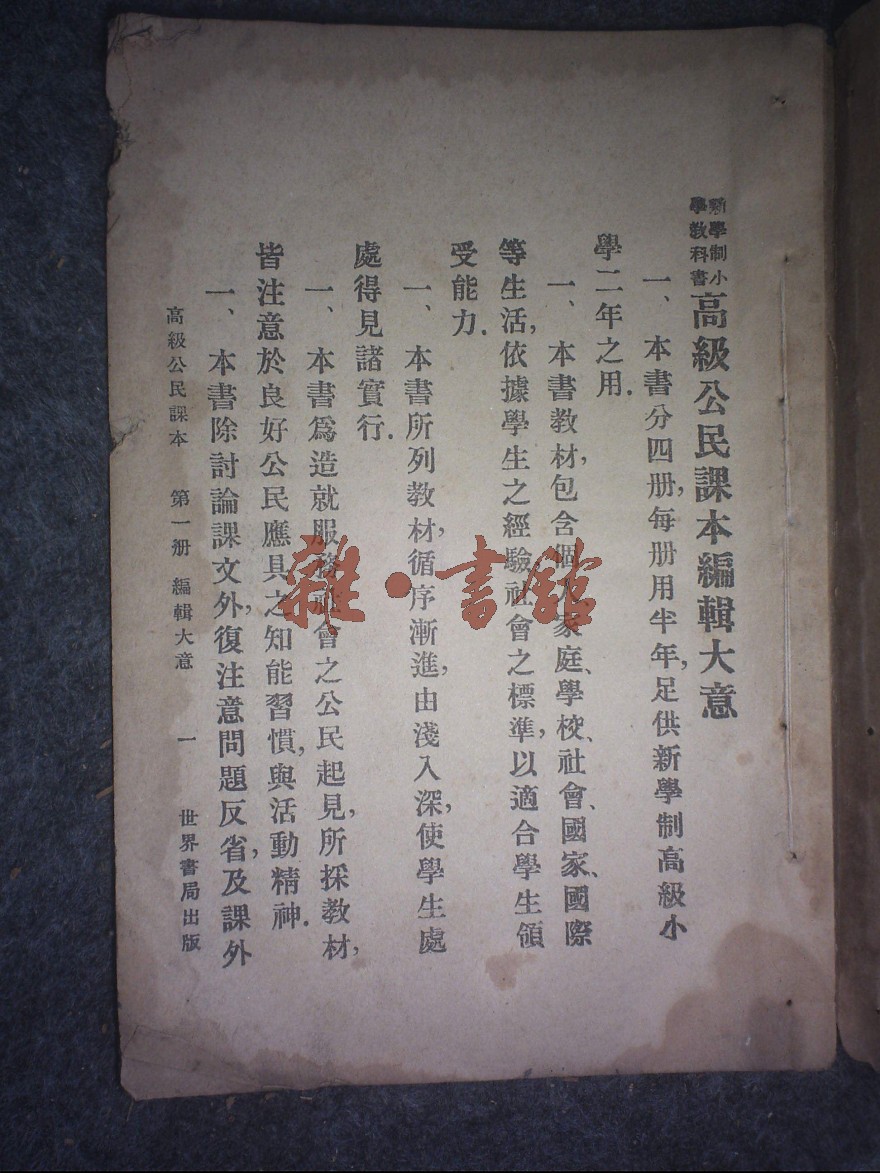 新學制小
學教科書
高級公民課本編輯大意
一、本書分四册,每册用半年,足供新學制高級小
學二年之用.
一、本書教材,包含個人、家庭、學校、社會、國家、國際
等生活,依據學生之經驗社會之標準,以適合學生領
受能力.
一、本書所列教材,循序漸進,由淺入深,使學生處
處得見諸實行.
一、本書爲造就服務社會之公民起見,所採教材,
皆注意於良好公民應具之知能習慣,與活動精神.
一、本書除討論課文外,復注意問題反省,及課外
高級公民課本 第一册 編輯大意 一 世界書局出版
雜·書館